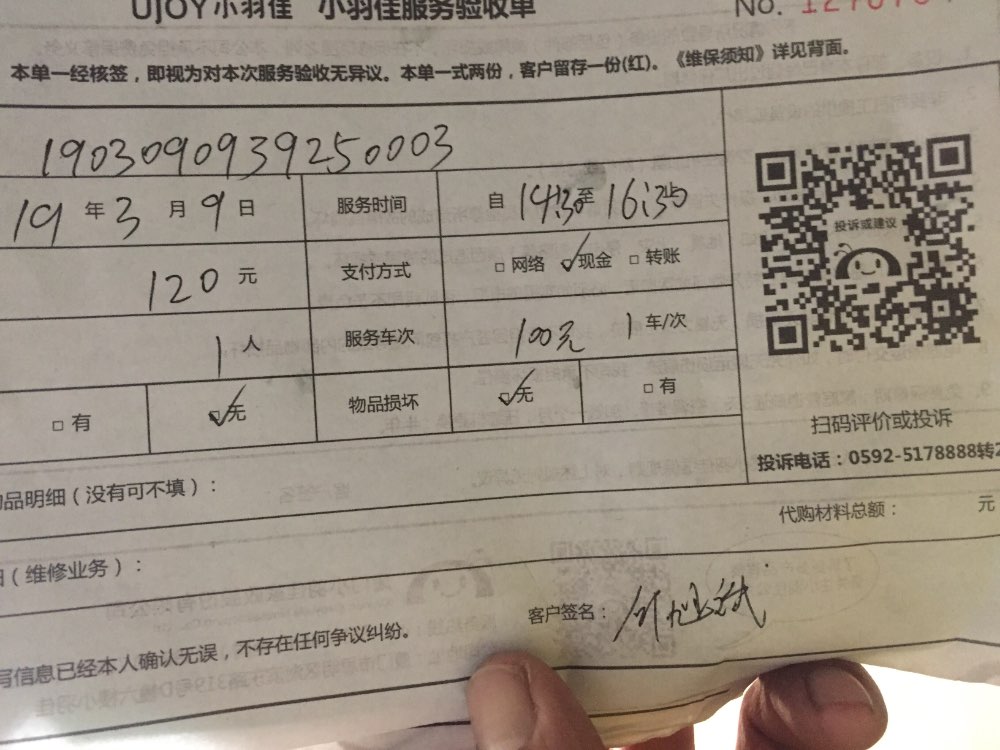 UJOY小羽佳 小羽佳服务验收单
No.
本单一经核签，即视为对本次服务验收无异议。本单一式两份，客户留存一份(红)。《维保须知》详见背面。
1903090939250003
19 年 3 月 9 日 服务时间 自 14:30 至 16:30
投诉或建议
120 元 支付方式 □ 网络 ☑现金 □ 转账
1 人 服务车次 100元 1 车/次
□ 有 ☑无 物品损坏 ☑无 □ 有
扫码评价或投诉
投诉电话：0592-5178888转2
物品明细（没有可不填）：
代购材料总额： 元
（维修业务）：
客户签名：
写信息已经本人确认无误，不存在任何争议纠纷。